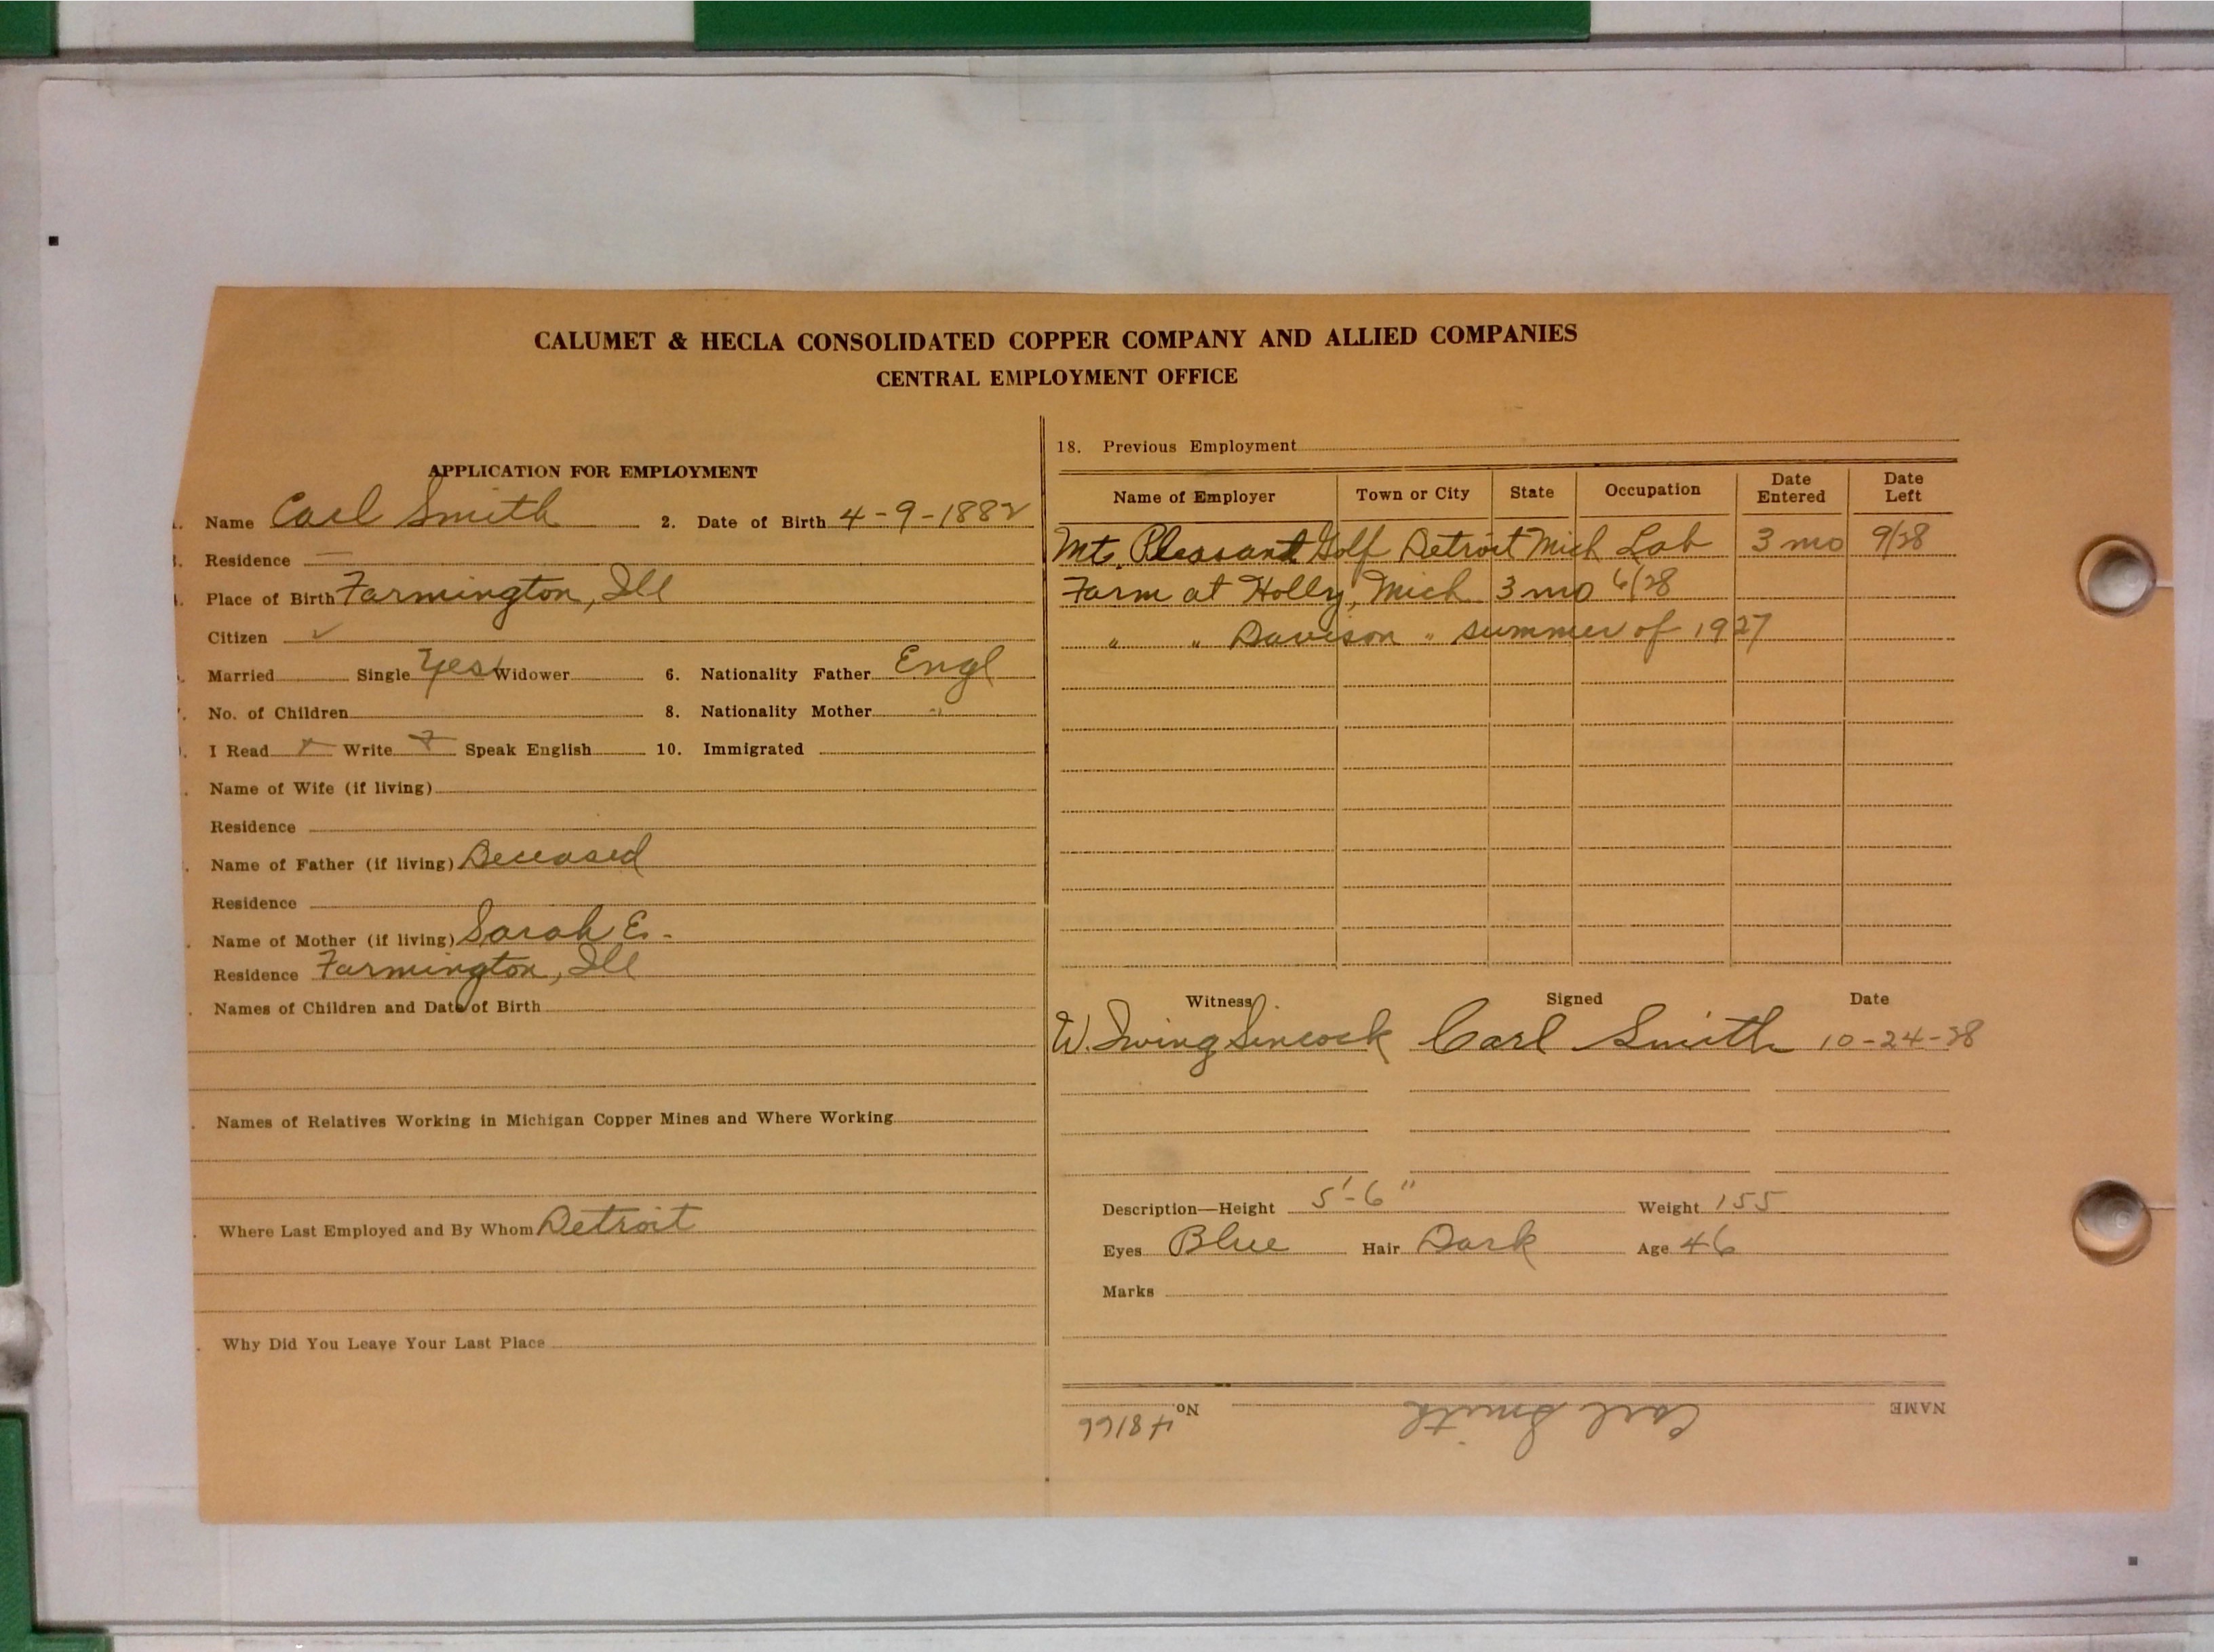 CALUMET & HECLA CONSOLIDATED COPPER COMPANY AND ALLIED COMPANIES
CENTRAL EMPLOYMENT OFFICE
APPLICATION FOR EMPLOYMENT
Name Carl Smith 2. Date of Birth 4-9-1882
Residence —
Place of Birth Farmington, Ill
Citizen ✓
Married Single Yes Widower 6. Nationality Father Engl
No. of Children 8. Nationality Mother "
I Read + Write + Speak English 10. Immigrated
Name of Wife (if living)
Residence
Name of Father (if living) Deceased
Residence
Name of Mother (if living) Sarah E.
Residence Farmington, Ill
Names of Children and Date of Birth
Names of Relatives Working in Michigan Copper Mines and Where Working
Where Last Employed and By Whom Detroit
Why Did You Leave Your Last Place
18. Previous Employment
Name of Employer Town or City State Occupation Date Entered Date Left
Mt. Pleasant Golf Detroit Mich Lab 3 mo 9/28
Farm at Holly, Mich 3 mo 6/28
" " Davison " summer of 1927
Witness Signed Date
W. Irving Sincock Carl Smith 10-24-28
Description—Height 5'-6" Weight 155
Eyes Blue Hair Dark Age 46
Marks
NAME Carl Smith No. 48166